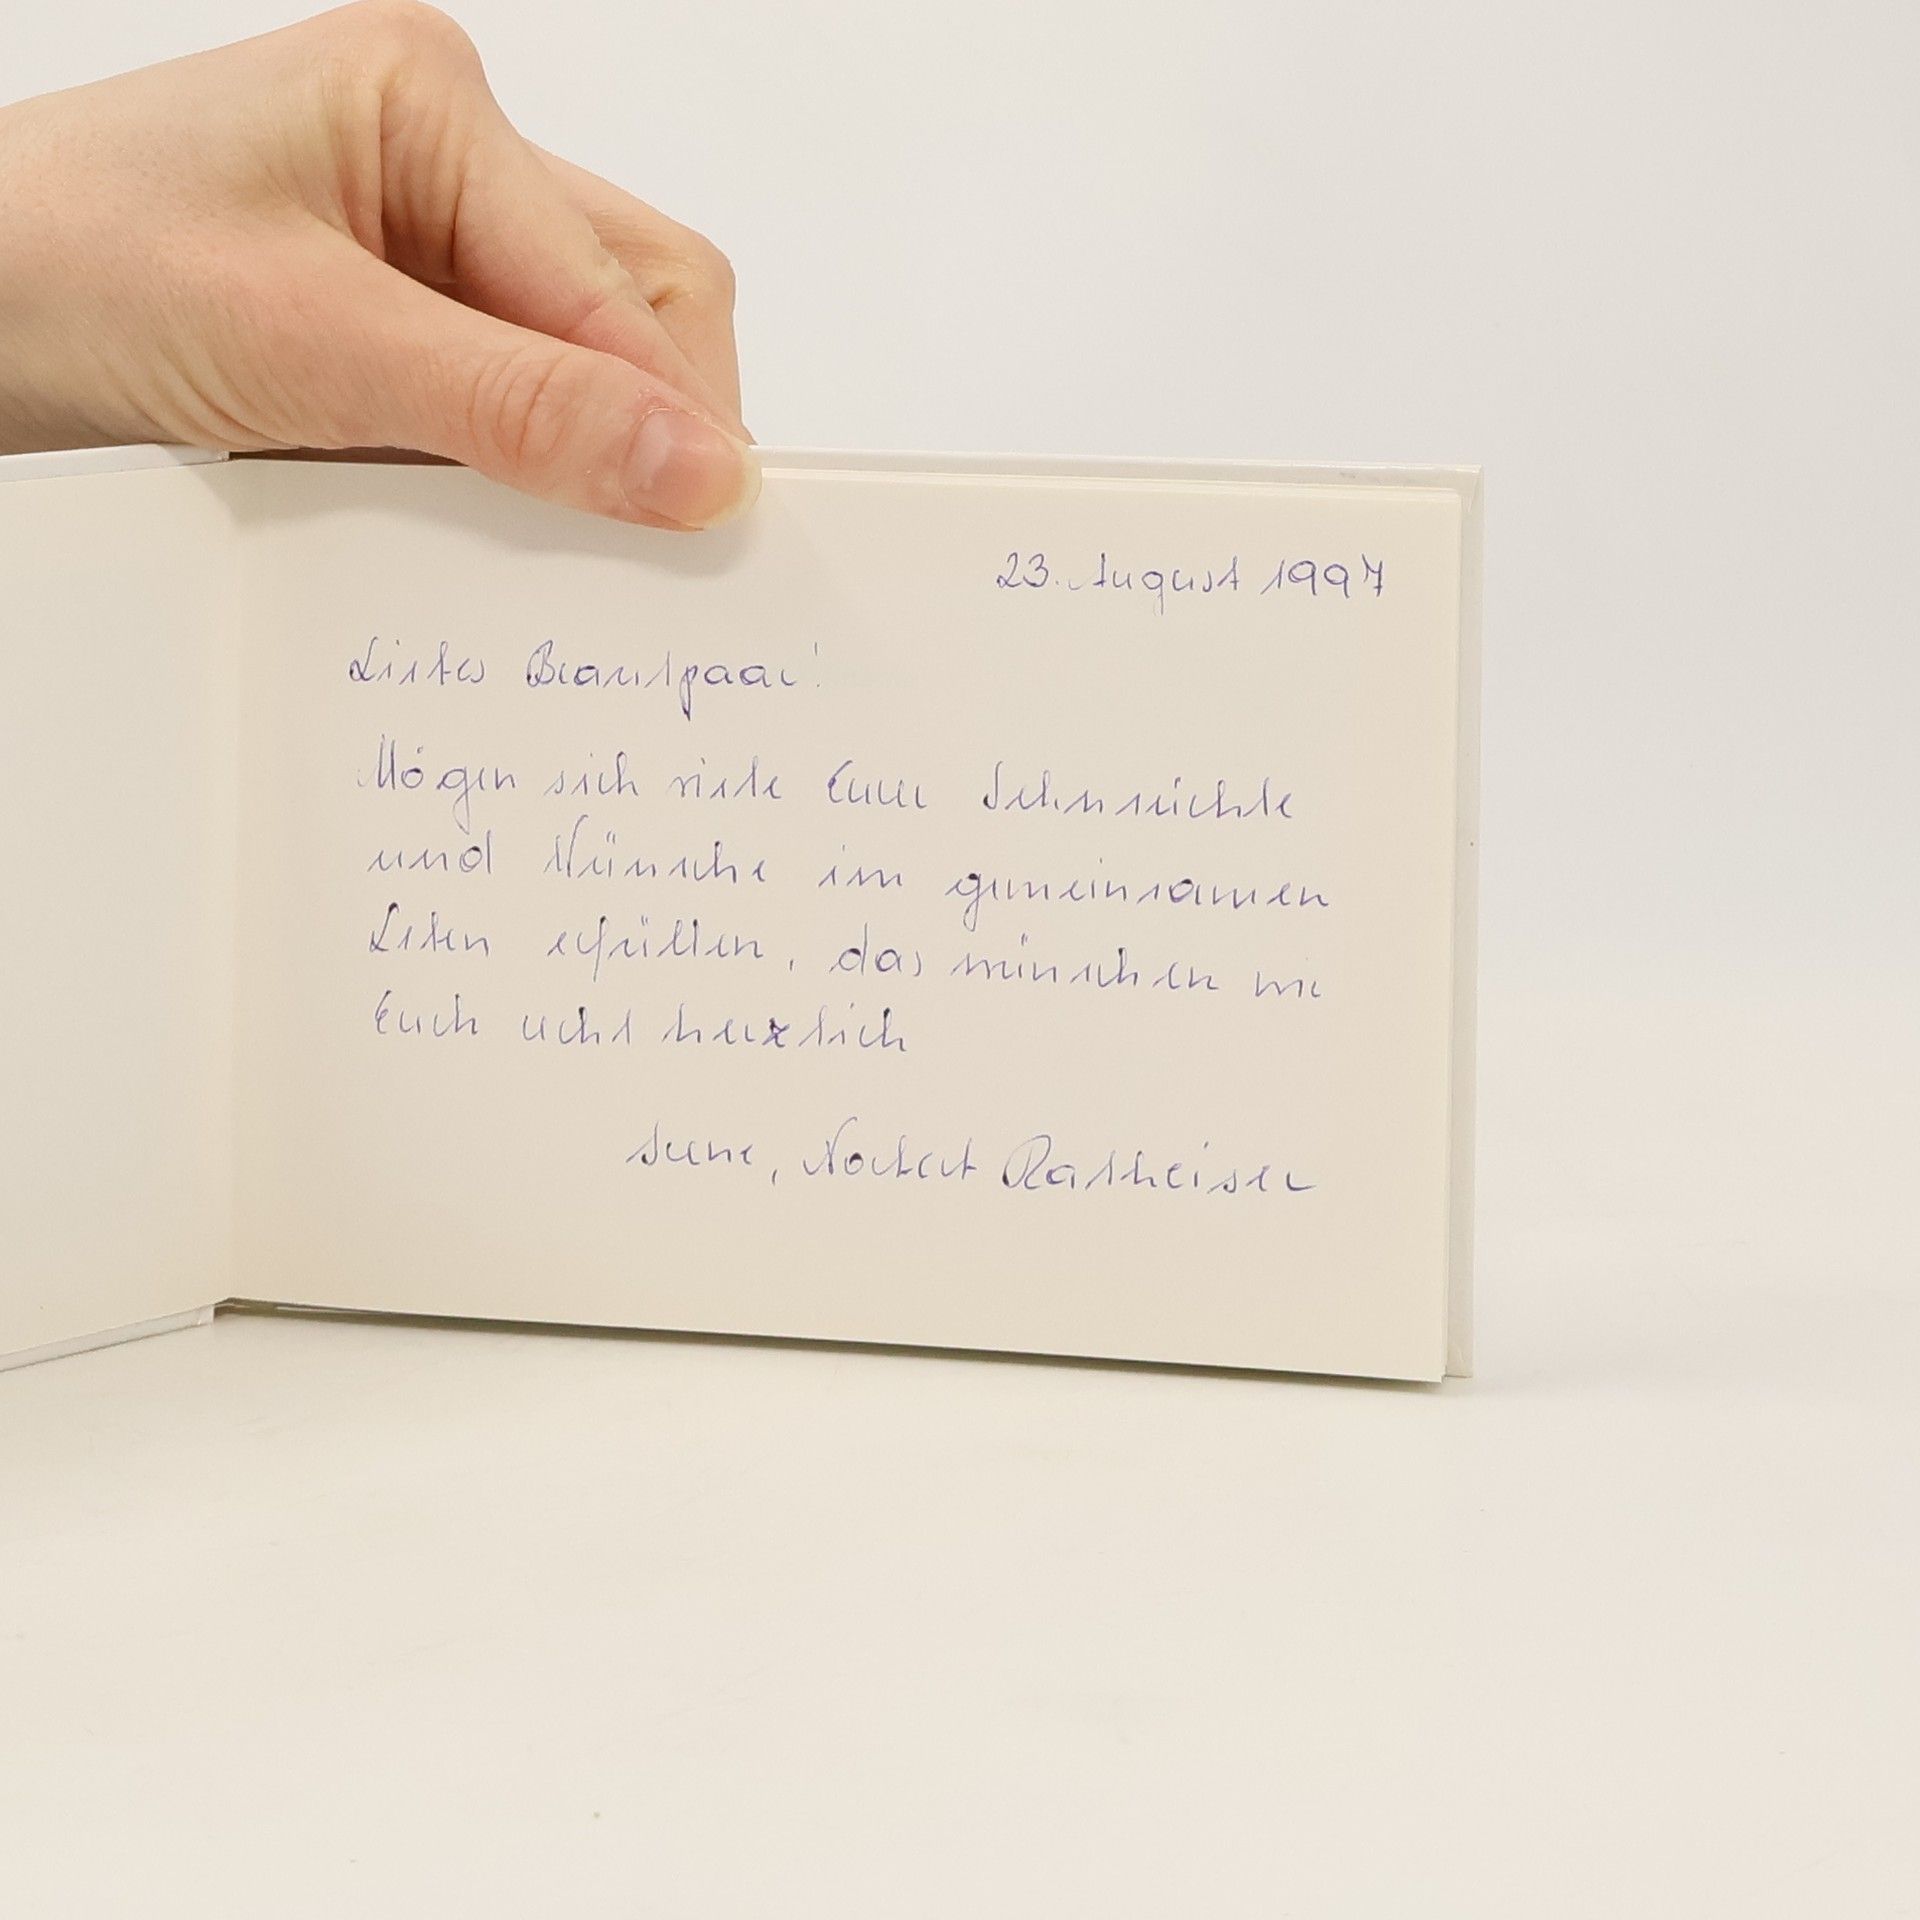 23. August 1997
Liebes Brautpaar!
Mögen sich viele Eurer Sehnsüchte
und Wünsche im gemeinsamen
Leben erfüllen, das wünschen wir
Euch recht herzlich
Irene, Norbert Ratheiser